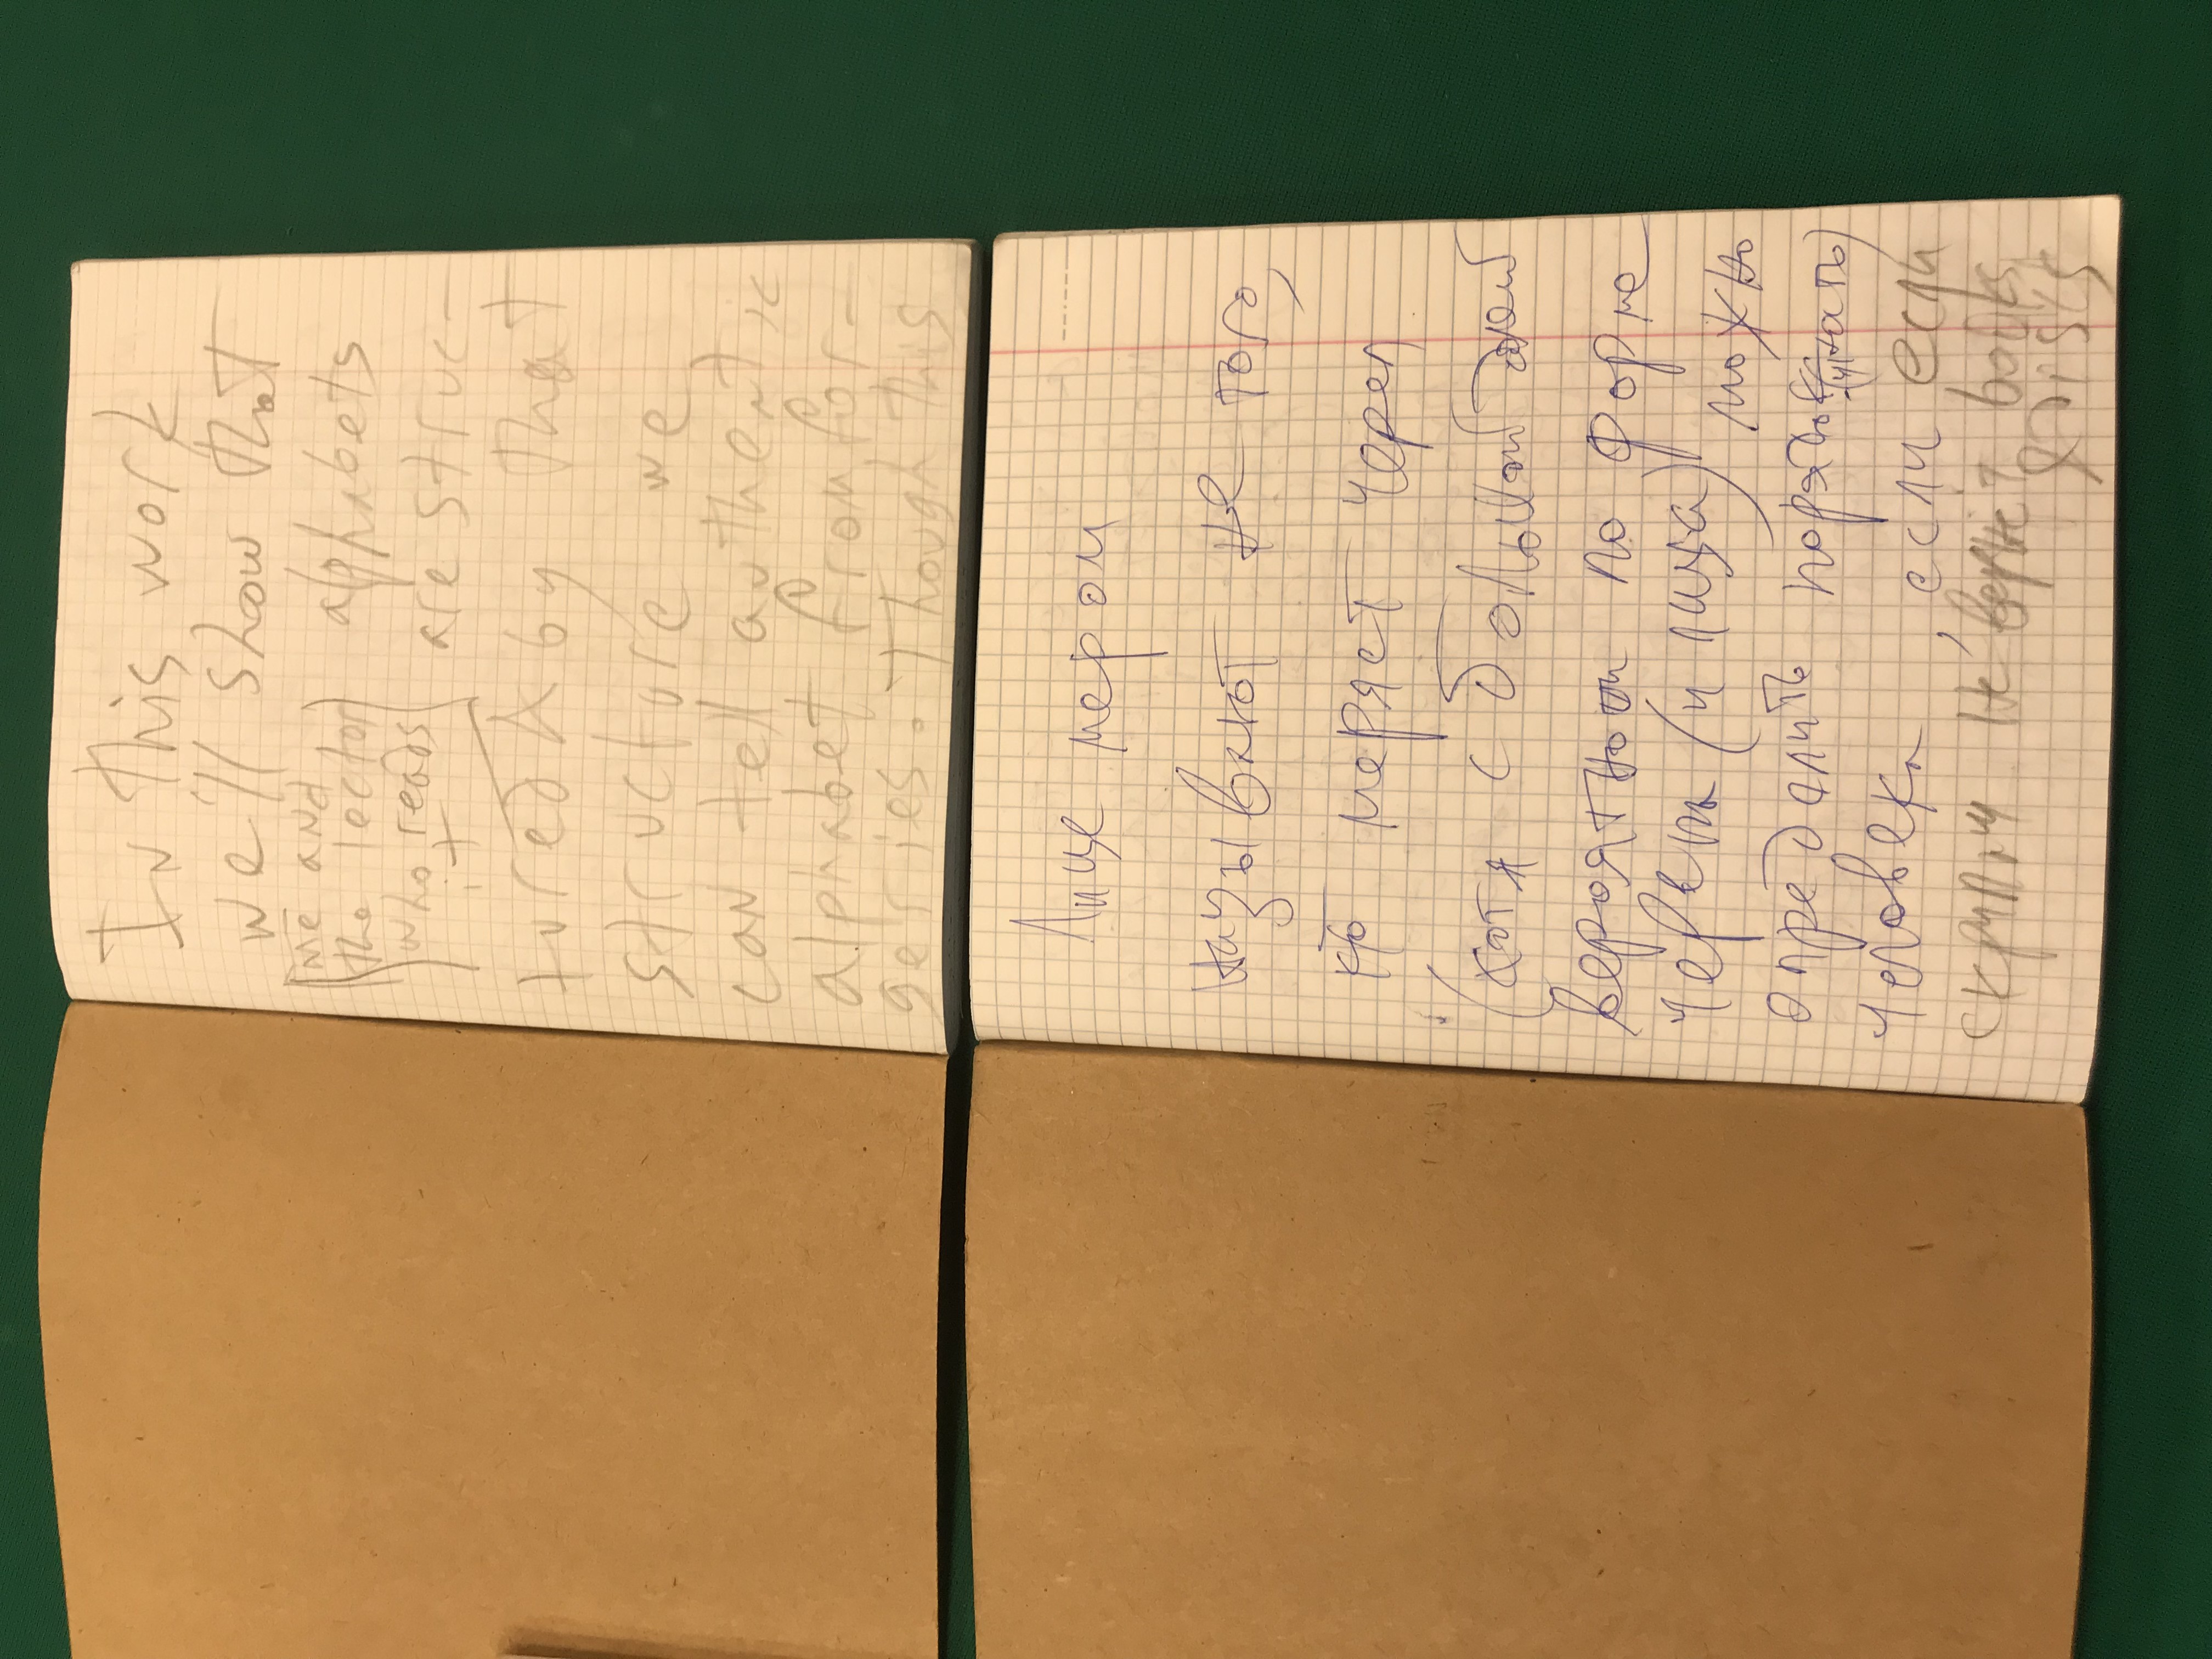 In this work
we'll show that
(me and
the lector
who reads
it)
alphabets
are struc-
tured & by that
structure we
can tell authentic
alphabet from for-
geries. Though this
Лице мером
называют не того,
кто меряет череп
(хотя с большой долей
вероятности по форме
черепа (и лица) можно
определить породу (знать)
человека, если если
скрипты не books
& discs